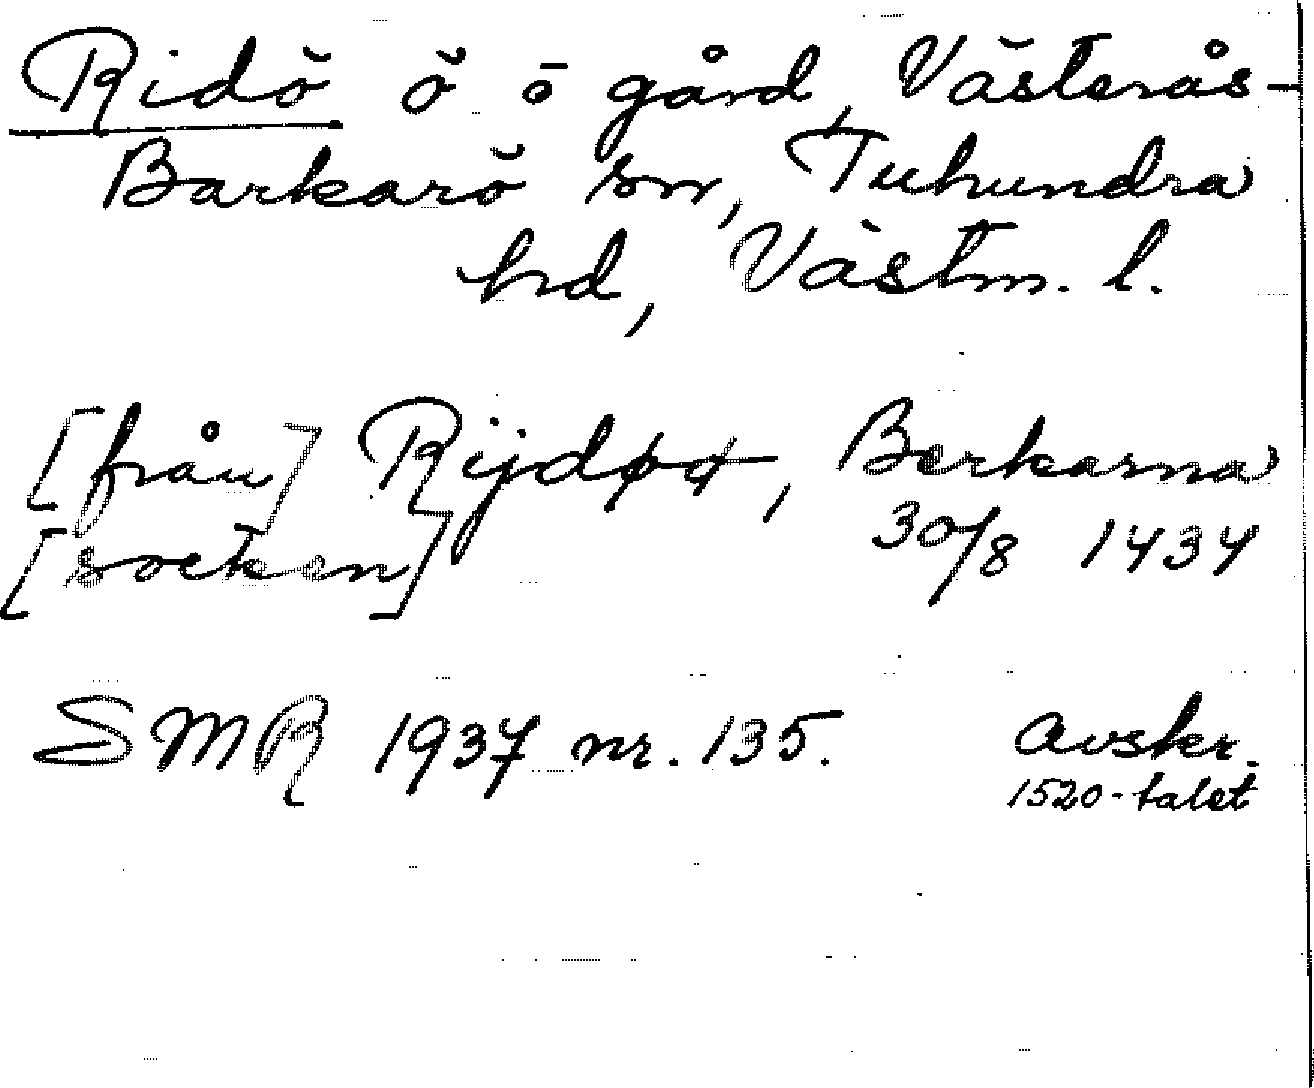 Ridö ö o gård, Västerås-
Barkarö sn, Tuhundra
hd, Västm. l.
[från] Rijdøø, Berkarna
[socken] 30/8 1434
SMR 1937 nr. 135. Avskr.
1520-talet